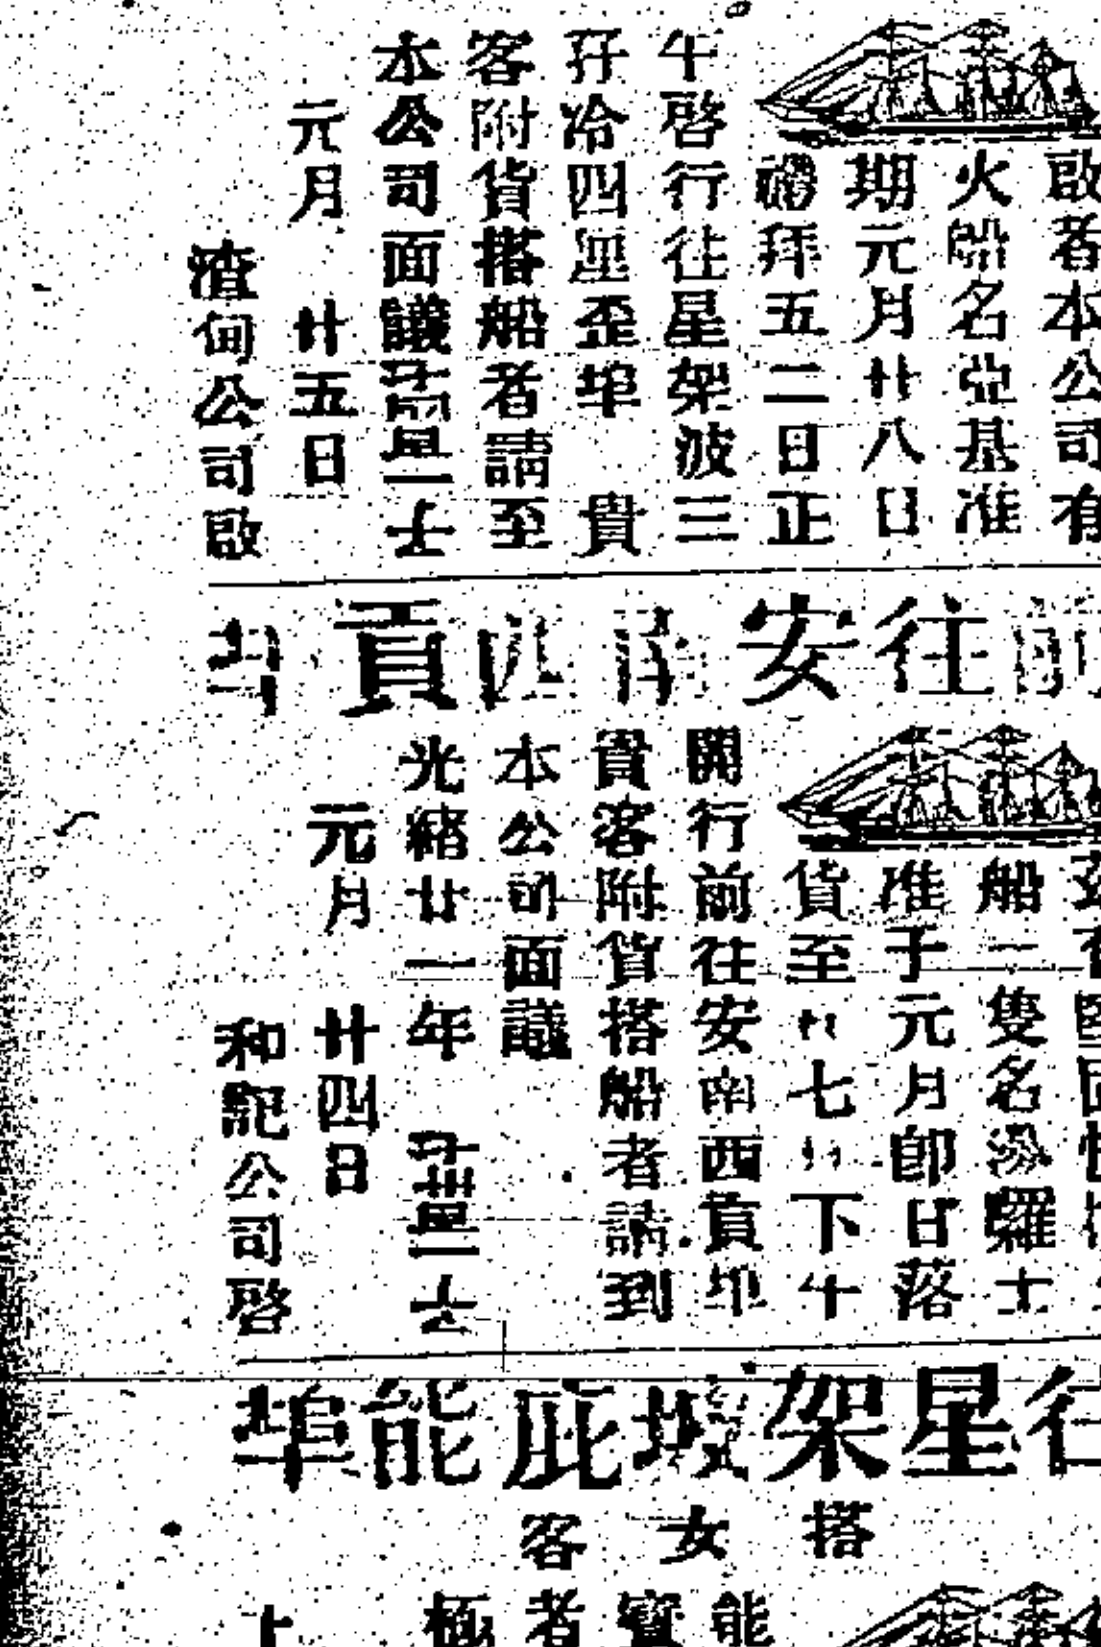 啟者本公司有
火船名亞基准
期元月廿八日
禮拜五二日正
午啓行往星架波三
孖冷四里歪埠 貴
客附貨搭船者請至
本公司面議 一士
元月 廿五日
渣甸公司啟
前往安南西貢埠
船一隻名 羅士
准于元月卽日落
貨至廿七 下午
開行前往安南西貢埠
貴客附貨搭船者請到
本公司面議
光緒廿一年 一士
元月 廿四日
和記公司啓
往星架坡庇能埠
搭女客
能
寶
者
極
上